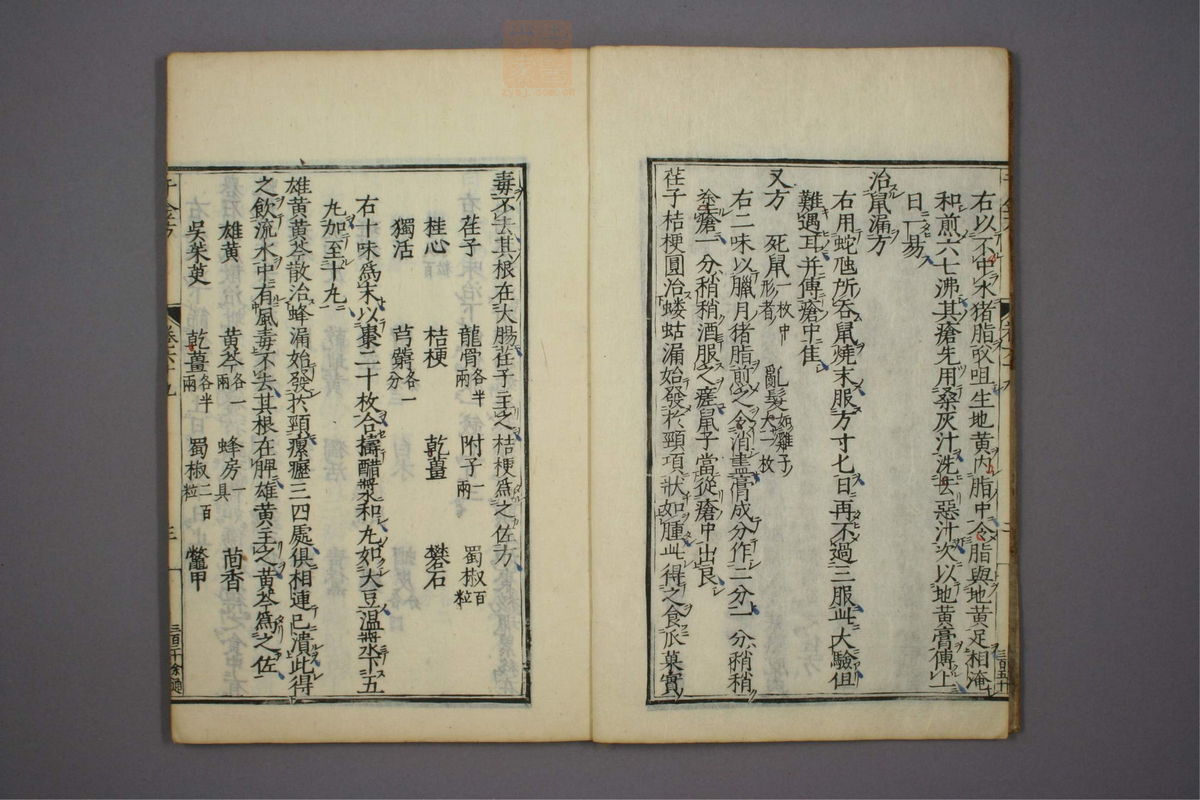 右以不中水猪脂㕮咀生地黄内脂中令脂與地黄足相淹
和煎六七沸其瘡先用桑灰汁洗去惡汁次以地黄膏傅上
日一易
治鼠漏方
右用蛇虺所吞鼠燒末服方寸七日再不過三服此大驗但
難遇耳并傅瘡中佳
又方 死鼠一枚中形者 亂髮如雞子大一枚
右二味以臘月猪脂煎之令消盡膏成分作二分一分稍稍
塗瘡一分稍稍酒服之瘥鼠子當從瘡中出良
荏子桔梗圓治螻蛄漏始發於頸項狀如腫此得之食瓜菓實
毒不去其根在大腸荏子主之桔梗爲之佐方
荏子 龍骨各半兩 附子一兩 蜀椒百粒
桂心 桔梗 乾薑 礬石
獨活 芎藭各一分
右十味爲末以棗二十枚合擣醋漿和丸如大豆温漿下五
丸加至十丸
雄黄黄芩散治蜂漏始發於頸瘰癧三四處俱相連已潰此得
之飲流水中有風毒不去其根在脾雄黄主之黄芩爲之佐
雄黄 黄芩各一兩 蜂房一具 茴香
吳茱萸 乾薑各半兩 蜀椒二百粒 鼈甲